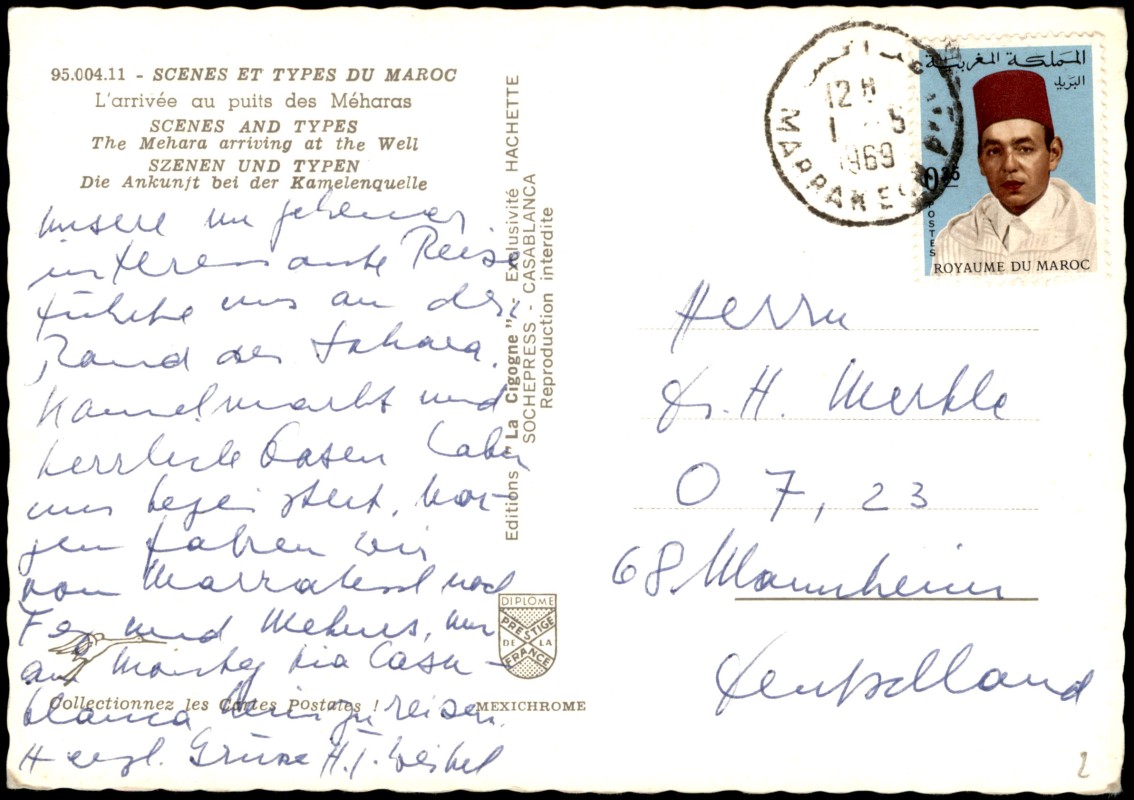 95.004.11 - SCENES ET TYPES DU MAROC
L'arrivée au puits des Méharas
SCENES AND TYPES
The Mehara arriving at the Well
SZENEN UND TYPEN
Die Ankunft bei der Kamelenquelle
Unsere
interessante Reise
führte uns an den
Rand der Sahara.
Kamelmarkt und
herrliche Oasen haben
uns begeistert. Mor-
gen fahren wir
von Marrakesch nach
Fez und Meknes, um
am Montag via Casa-
blanca heimzureisen.
Herzl. Grüsse H. J.
Collectionnez les Cartes Postales !
MEXICHROME
Editions "La Cigogne" - Exclusivité HACHETTE
SOCHEPRESS - CASABLANCA
Reproduction interdite
DIPLOME
PRESTIGE
DE LA
FRANCE
12 H
1 - 5
1969
MARRAKECH
المملكة المغربية
البريد
0,35
POSTES
ROYAUME DU MAROC
Herrn
Dr. H. Merkle
O 7, 23
68 Mannheim
Deutschland
2